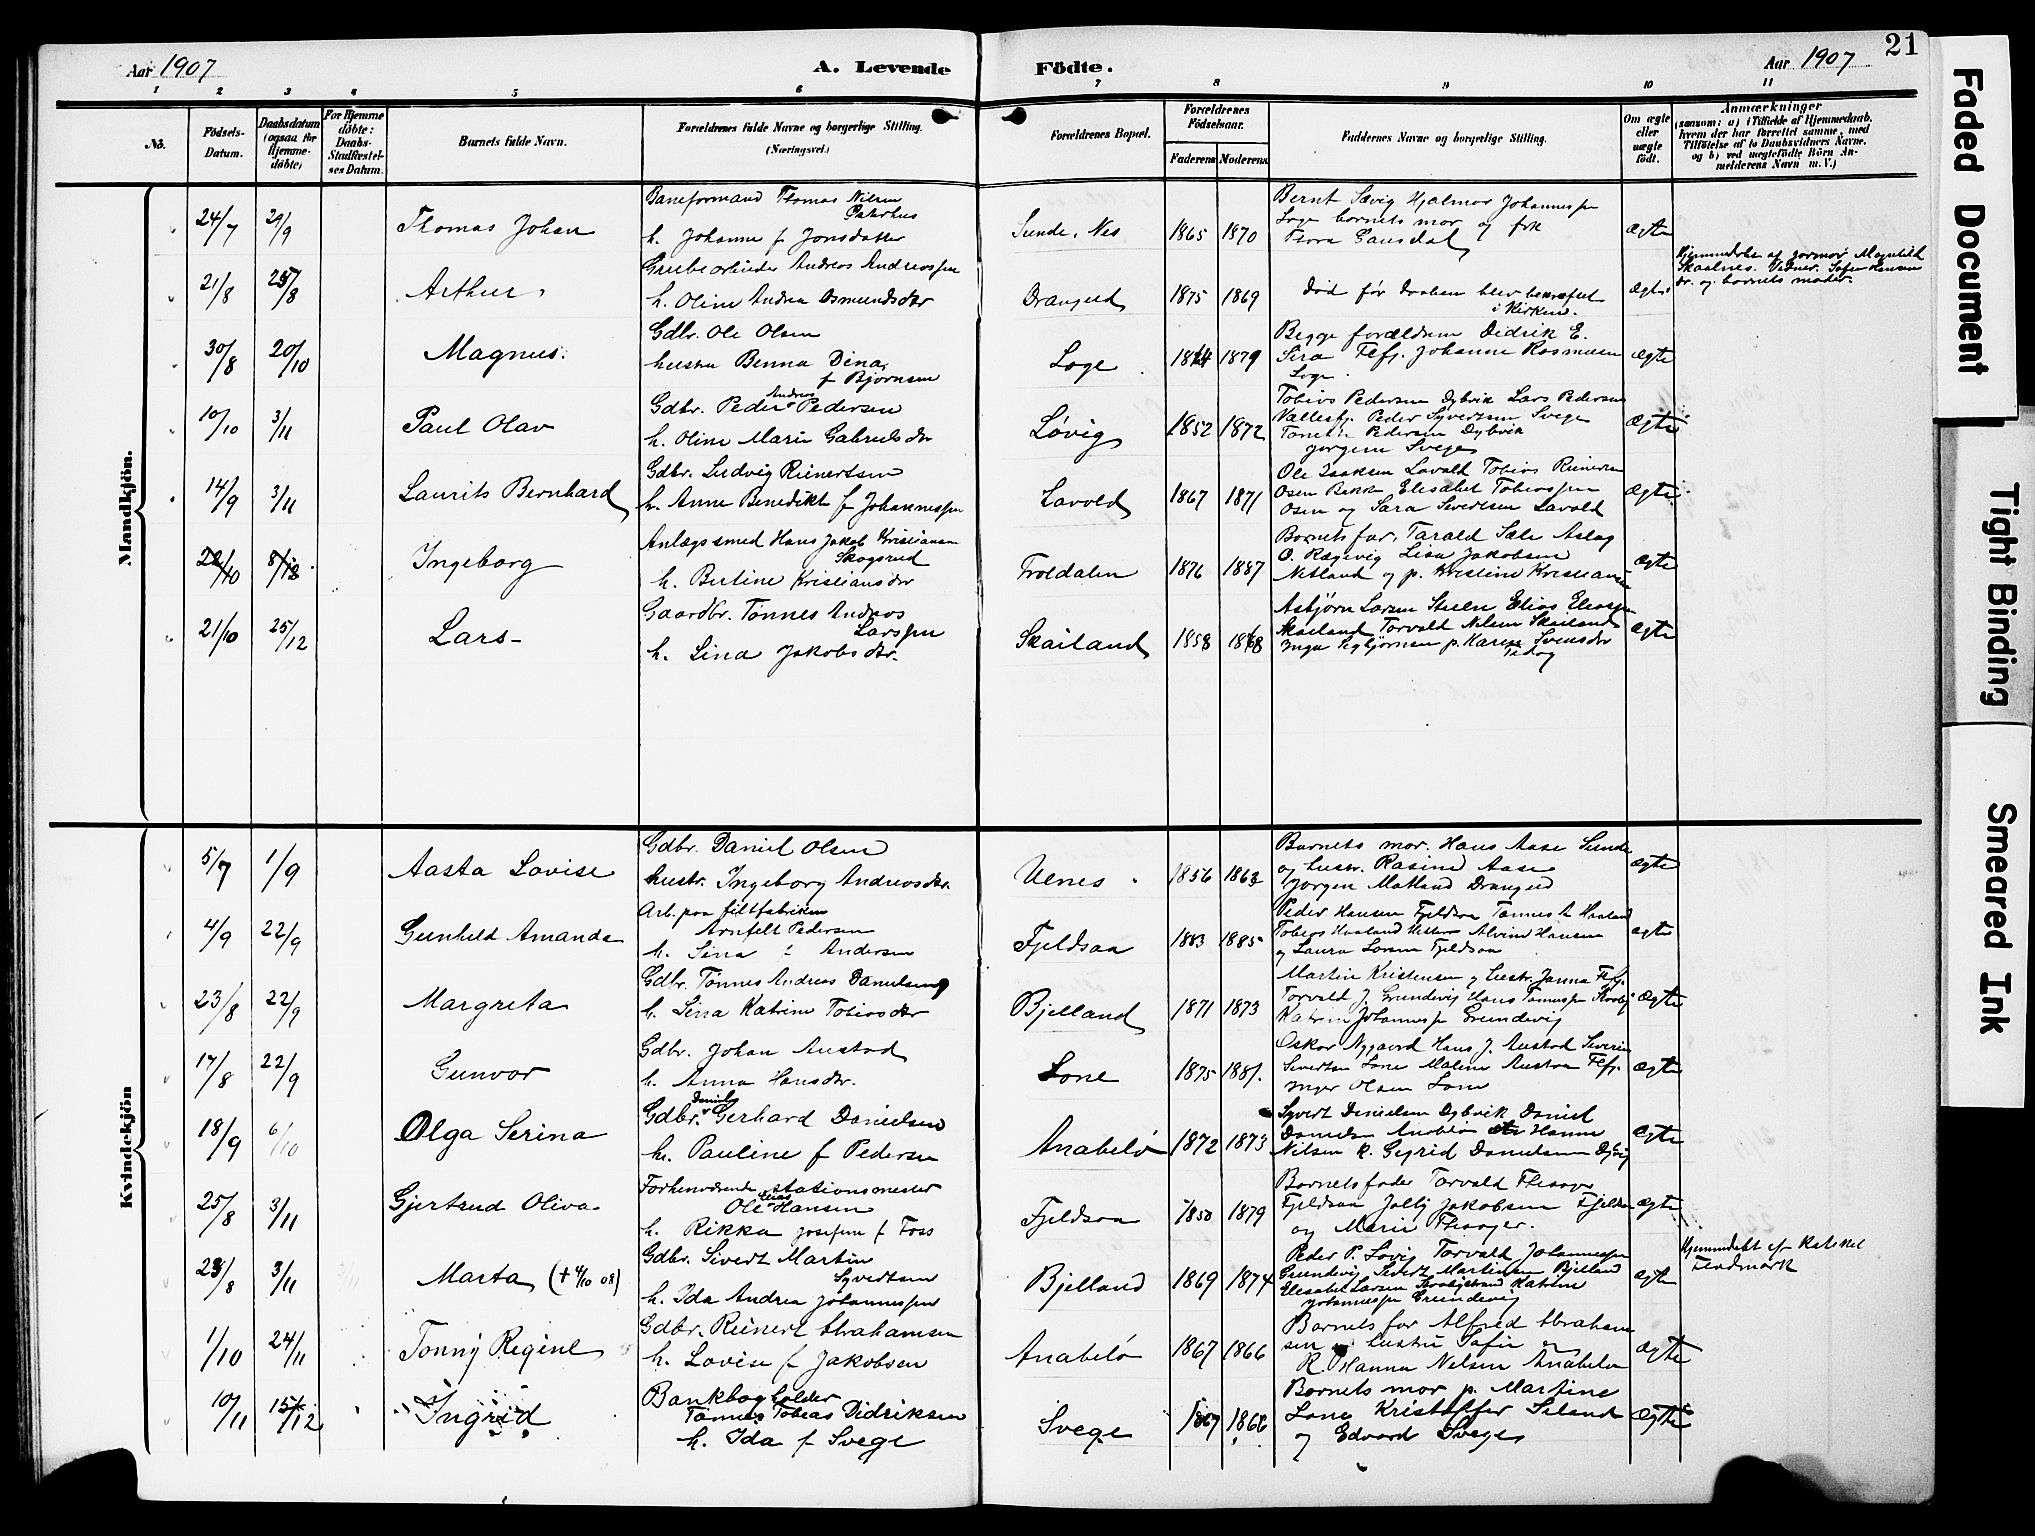 Aar 1907
A. Levende Födte.
Aar 1907
21
1 2 3 4 5 6 7 8 9 10 11
No.
Födsels-Datum.
Daabsdatum (ogsaa för Hjemme-döbte)
For Hjemme döbte: Daabs-Stadfæstel-ses Datum.
Barnets fulde Navn.
Forældrenes fulde Navne og borgerlige Stilling. (Næringsvei.)
Forældrenes Bopæl.
Forældrenes Födselsaar.
Faderens Moderens
Faddernes Navne og borgerlige Stilling.
Om ægte eller uægte födt.
Anmærkninger
(saasom: a) i Tilfælde af Hjemmedaab, hvem der har forrettet samme, med Tilföielse af to Daabsvidners Navne, og b) ved uægtefödte Börn An-melderens Navn m. V.)
Mandkjön.
24/7 29/9 Thomas Johan
Baneformand Thomas Nilsen
h. Johanne f Jonsdatter
Sunde, Nes 1865 1870
Bernt Søvig Hjalmar Johannessen
Loge barnets mor og frk
Thora Gausdal
ægte
21/8 25/8 Arthur
Grubearbeider Andreas Andreassen
h. Oline Andrea Osmundsdtr
Drangeid 1875 1869
Død før daaben blev bekræftet
i Kirken.
ægte
Hjemmedøbt af jormor Magnhild
Skaalnes. Vidner. Sofie Hansen
dr. og barnets moder.
30/8 20/10 Magnus.
Gdbr. Ole Olsen
hustru Benna Dina
f Bjørnsen
Loge 1874 1879
Begge forældrene Didrik E.
Sira Flfj. Johanne Rasmusen
Loge.
ægte
10/10 3/11 Paul Olav
Gdbr. Peder Andreas Pedersen
h. Oline Marie Gabrielsdtr
Løvig 1852 1872
Tobias Pedersen Dybvik Lars Pedersen
Vallesfj. Peder Syvertsen Svege
Tonette Pedersen Dybvik
Jørgine Svege
ægte
14/9 3/11 Laurits Bernhard
Gdbr. Ludvig Reinertsen
h. Anne Benedikt f Johannessen
Lavold 1867 1871
Ole Isaksen Lavold Tobias Reinertsen
Osen Bekk Elisabet Tobiassen
Osen og Sara Sivertsen Lavold
ægte
22/10 8/12 Ingeborg
Anlægssmed Hans Jakob Kristiansen
Skogsrud
h. Bertine Kristiansdtr
Troldalen 1876 1887
Barnets far, Tarald Sæle Aslag
O. Rægevig Lisa Jakobsen
Netland og p. Kristine Kristiansen
ægte
21/10 25/12 Lars
Gaardbr. Tønnes Andreas
Larssen
h. Lina Jakobsdtr.
Skailand 1858 1868
Asbjørn Larsen Steen Elias Eliassen
Skailand Torvald Nilsen Skailand
Inga Sigbjørnsen p. Karen Svensdtr
ægte
Kvindekjön
5/7 1/9 Aasta Lovise
Gdbr. Daniel Olsen
hustr. Ingeborg Andreasdtr.
Uenes 1856 1863
Barnets mor. Hans Aase Sunde
og hustr. Rasine Aase
Jørgen Matland Drangeid
ægte
4/9 22/9 Gunhild Amanda
Arb. paa filtfabriken
Arnfelt Pedersen
h. Lina f Andersen
Fjeldsaa 1883 1885
Peder Hansen Fjeldsaa Tønnes A Haaland
Tobias Haaland Alvine Hansen
og Laura Larsen Fjeldsaa
ægte
23/8 22/9 Margreta
Gdbr. Tønnes Andreas Danielsen
h. Lina Katrine Tobiasdtr
Bjelland 1871 1873
Martin Kristensen og hustr. Janna Flfj.
Torvald J. Grundevig Hans Tønnessen
Katrine Johannessen Grundevig
ægte
17/8 22/9 Gunvor
Gdbr. Johan Austad
h. Anna Hansdtr.
Lone 1875 1881.
Oskar Nygaard Hans J. Austad Severin
Sivertsen Lone Maline Austad Flfj.
Inger Olsen Lone
ægte
18/9 6/10 Olga Serina
Gdbr. Daniel Gerhard Danielsen
h. Pauline f Pedersen
Anabelø 1872 1873
Syvert Danielsen Dybvik Daniel
Danielsen Anabelø Hanne
Nilsen p. Sigrid Danielsen Dybvig
ægte
25/8 3/11 Gjertrud Oliva
Forhenværende stationsmester
Ole Elias Hansen
h. Rikka Josefine f Foss
Fjeldsaa 1850 1879
Barnets fader Torvald
Fjeldsaa Jakobsen Fjeldsaa
og Marie
ægte
23/8 3/11 3/11 Marta (+ 4/10 08)
Gdbr. Sivert Martin
Syvertsen
h. Ida Andrea Johannessen
Bjelland 1869 1874
Peder P. Løvig Torvald Johannessen
Grundevig Sivert Martinsen Bjelland
Elisabet Larsen Katrine
Johannessen Grundevig
ægte
Hjemmedøbt af
1/10 24/11 Tonny Regine
Gdbr. Reinert Abrahamsen
h. Lovise f Jakobsen
Anabelø 1867 1866
Barnets far Alfred Abraham
sen og hustru Sofie og
R. Hanna Nilsen Anabelø
ægte
10/11 15/12 Ingrid
Bankbogholder
Tønnes Tobias Didriksen
h. Ida f Svege
Svege 1867 1866
Barnets mor p. Martine
Lone Kristoffer Seland
og Edvard Svege
ægte
Faded Document
Tight Binding
Smeared Ink